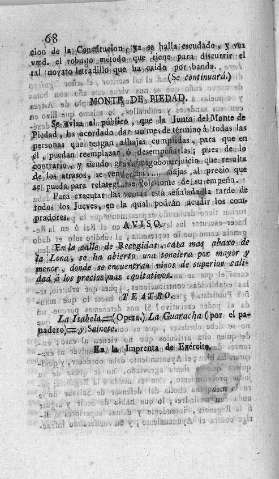 68
cion de la Constitucion, ya se halla escudado, y vea
vmd. el robajo mejodo que tiene para discurrir el
tal novato letradillo que ha caido por banda.
(Se continuará.)
MONTE DE PIEDAD.
Se avisa al público, que la Junta del Monte de
Piedad, ha acordado dar un mes de término á todas las
personas que tengan alhajas cumplidas, para que en
él, puedan reemplazar ó desempeñarlas; pues de lo
contrario, y siendo perjuicio que resulta
de los atrasos, se al precio que
se pueda para relatar de empeño.
Para executar las ventas está señalada la tarde de
todos los Jueves, en la qual podrán acudir los com-
pradores.
AVISO.
En la calle de Recogidas, casa mas abaxo de
la Lona, se ha abierto una tonelera por mayor y
menor, donde se encuentran vinos de superior cali-
dad á los precios mas equitativos.
TEATRO.
La Isabela = (Opera,) La Guaracha (por el pa-
nadero) = y Sainete.
En la Imprenta de Exército.